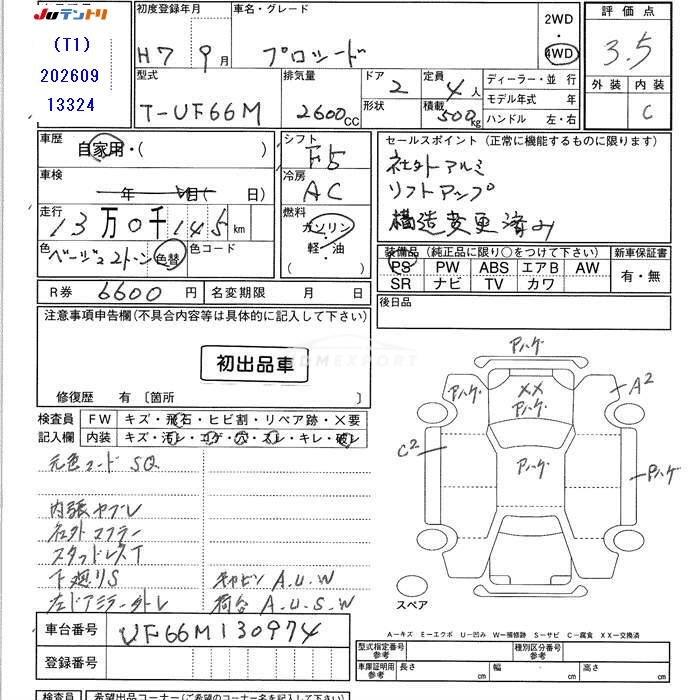 JUテントリ
(T1)
202609
13324
初度登録年月 車名・グレード
H7 9月 プロシード
2WD
4WD
評価点
3.5
外装 内装
C
型式 排気量 ドア 定員 ディーラー・並 行
T-UF66M 2600CC 2 4人 モデル年式 年
形状 積載 500kg ハンドル 左・右
車歴 シフト セールスポイント(正常に機能するものに限ります)
自家用・( ) F5
社外アルミ
車検 冷房
年 月( 日) AC
リフトアップ
走行 燃料
13万0千145km ガソリン・
構造変更済み
色 色替 色コード 軽・油
ベージュ2トーン
装備品(純正品に限り○をつけて下さい) 新車保証書
PS PW ABS エアB AW 有・無
SR ナビ TV カワ
R券 6600円 名変期限 月 日
後日品
注意事項申告欄(不具合内容等は具体的に記入して下さい)
初出品車
修復歴 有〔箇所 〕
検査員 FW キズ・飛石・ヒビ割・リペア跡・×要
記入欄 内装 キズ・汚レ・コゲ・穴・スレ・キレ・破レ
元色コード SQ
内張ヤブレ
社外マフラー
スタッドレスT
下廻りS キャビン A.U.W
左ドアミラー外レ 荷台 A.U.S.W
アハゲ
アハゲ ×× A2
アハゲ
C2 アハゲ アハゲ
スペア
A－キズ E－エクボ U－凹み W－補修跡 S－サビ C－腐食 XX－交換済
車台番号 UF66M130974
登録番号
型式指定番号 参考 種別区分番号 参考
車庫証明用 参考 長さ cm 幅 cm 高さ cm
検査員 希望出品コーナー(ご希望のコーナー名を記入して下さい)